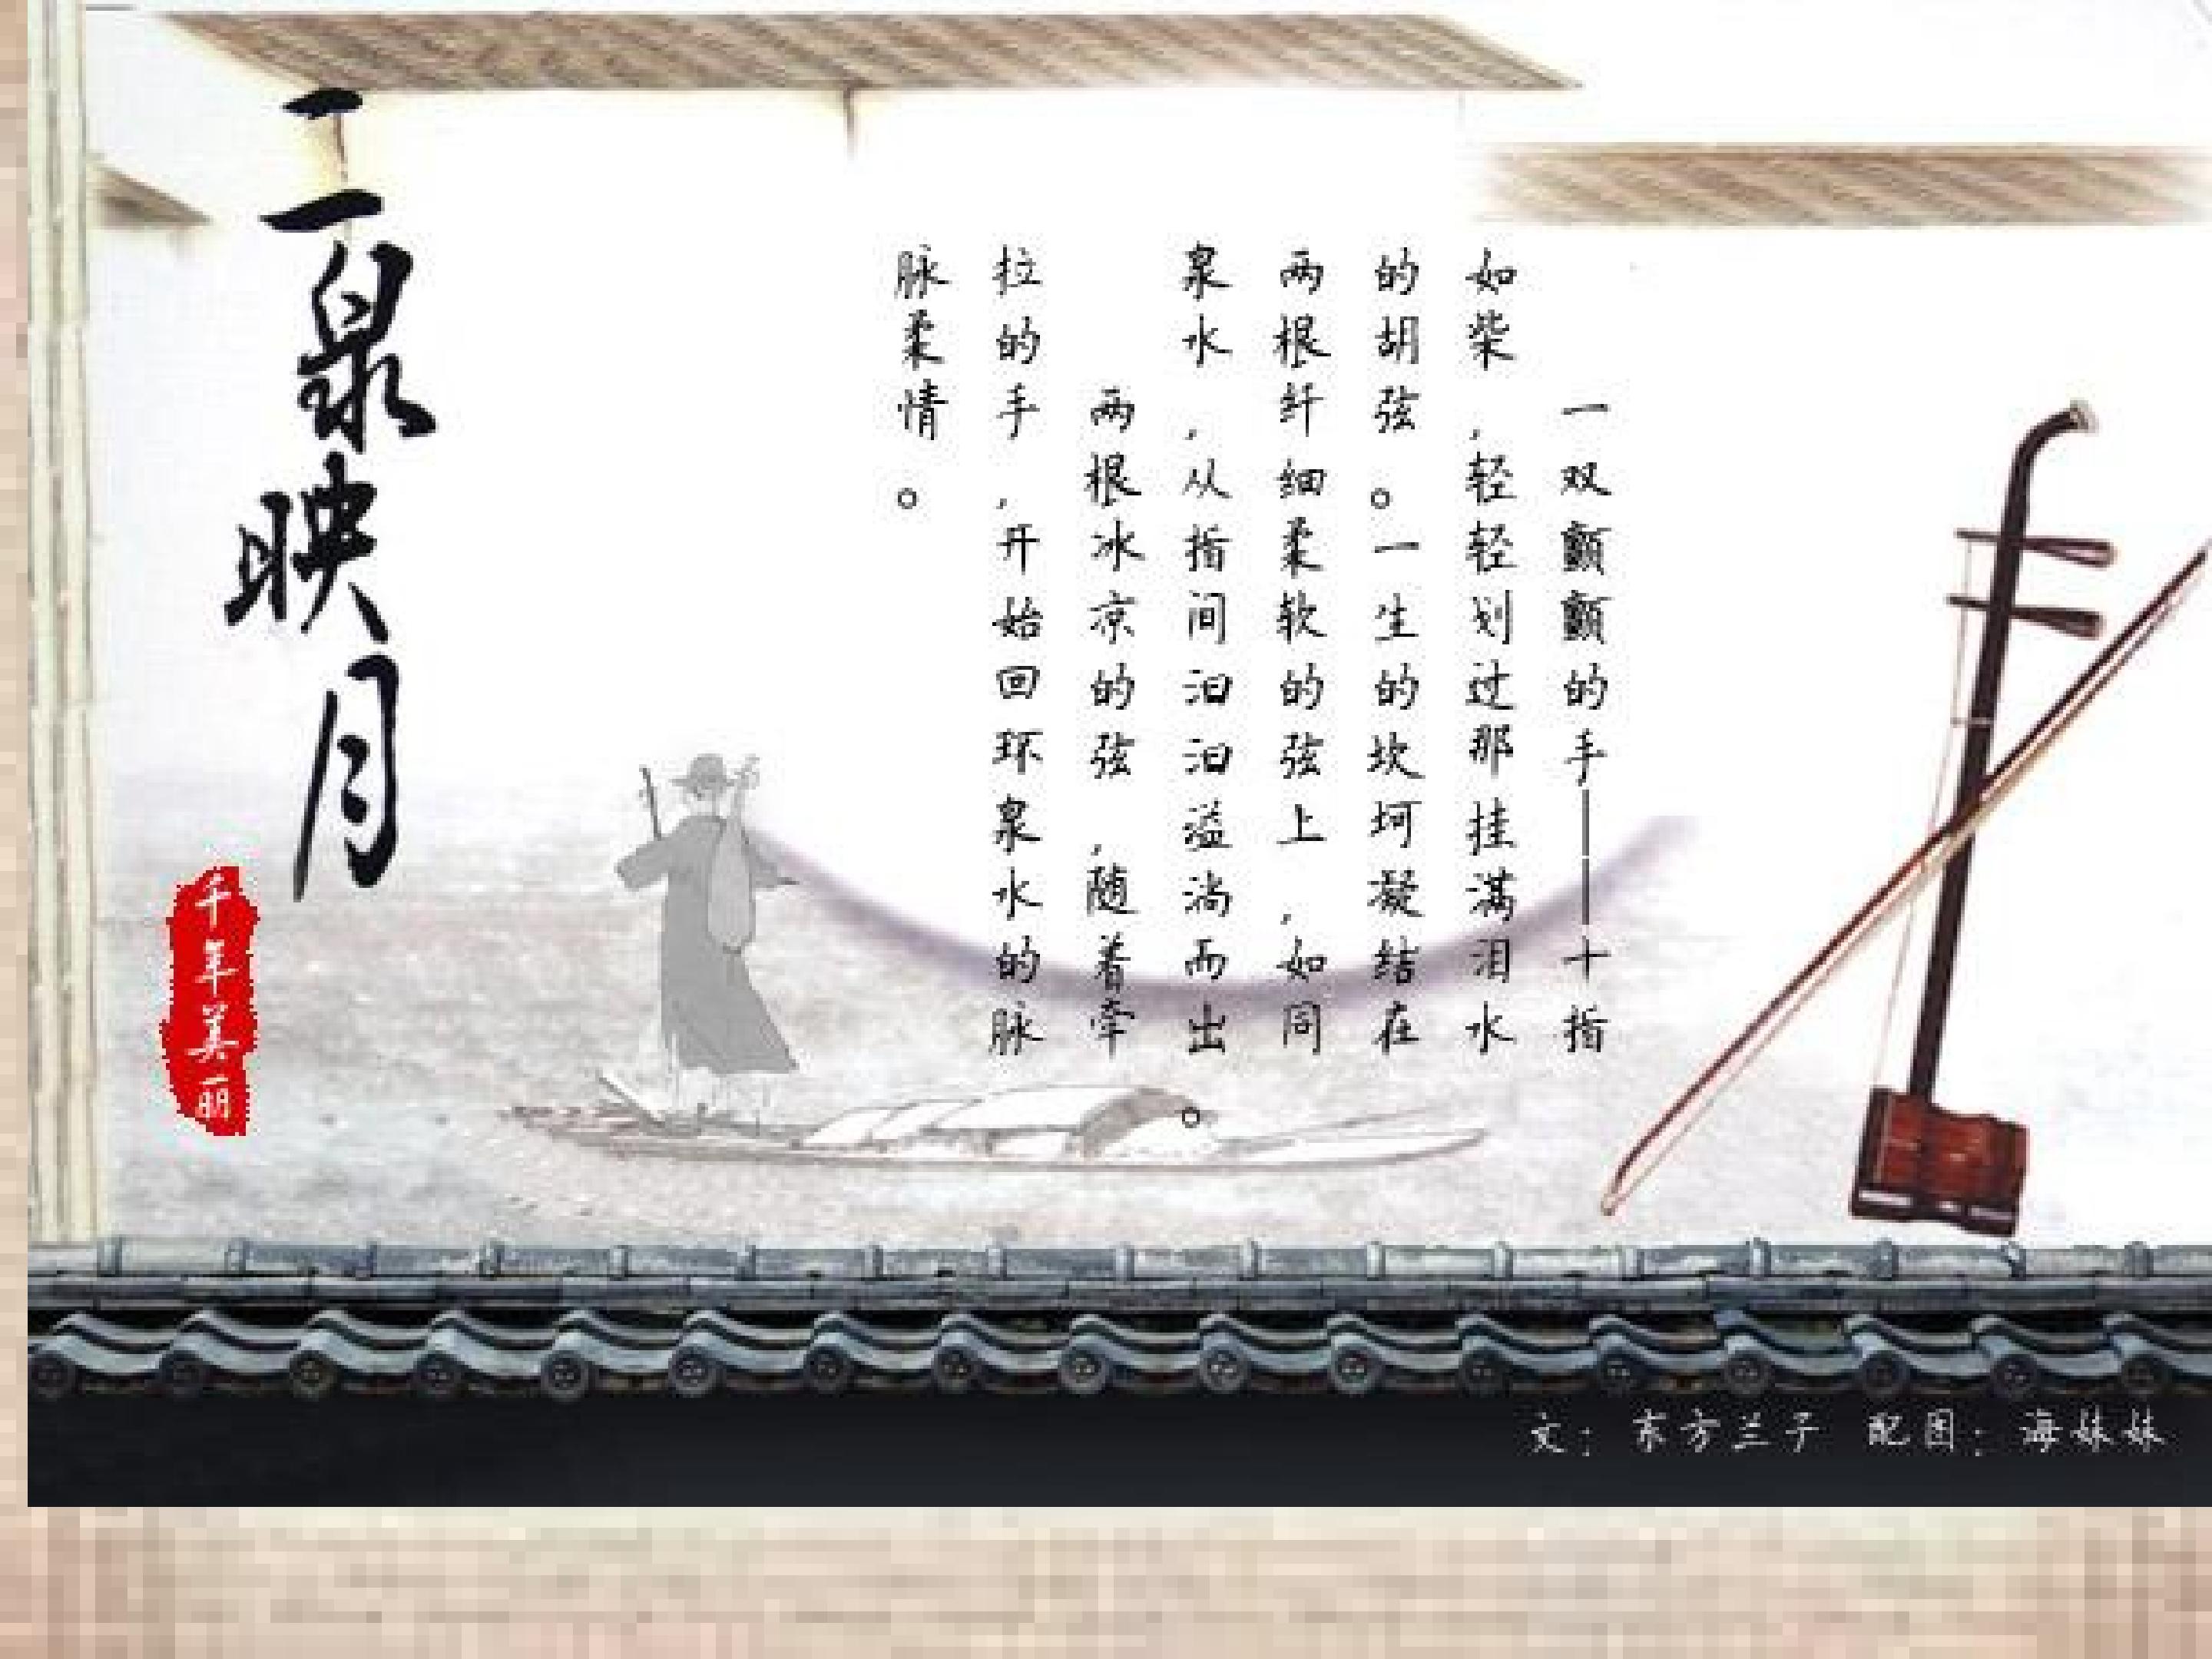 二泉映月
千年美丽
一双颤颤的手——十指
如柴,轻轻划过那挂满泪水
的胡弦。一生的坎坷凝结在
两根纤细柔软的弦上,如同
泉水,从指间汩汩溢淌而出。
两根冰凉的弦,随着牵
拉的手,开始回环泉水的脉
脉柔情。
文:东方兰子 配图:海妹妹